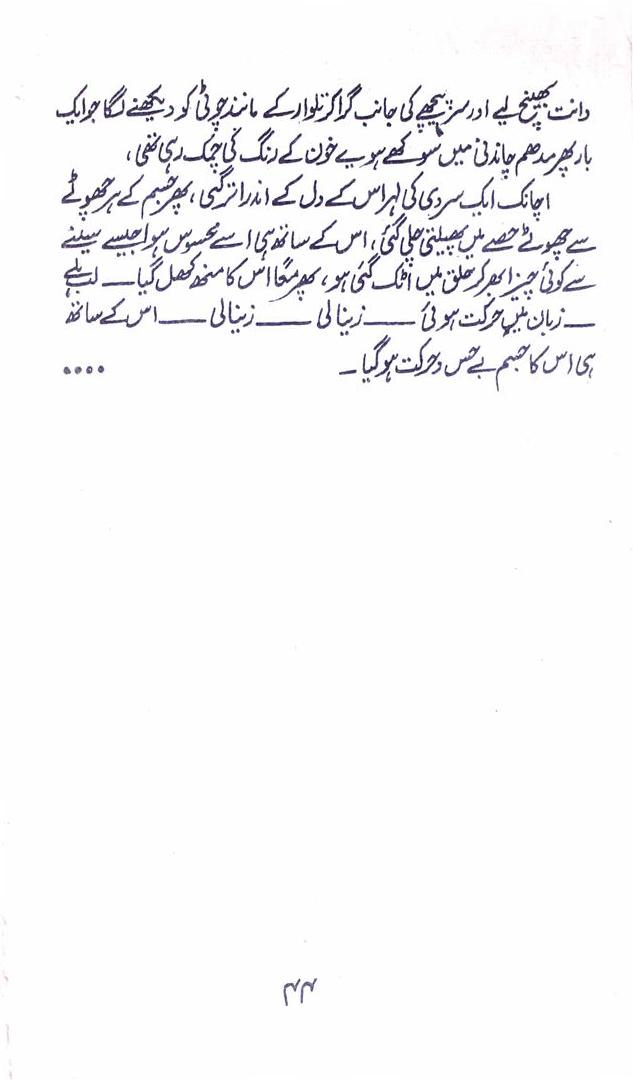 دانت بھینچ لیے اور سر پیچھے کی جانب گرا کر تلوار کے مانند چوٹی کو دیکھنے لگا جو ایک
بار پھر مدھم چاندنی میں سوکھے ہوے خون کے رنگ کی چمک رہی تھی ،
اچانک ایک سردی کی لہر اس کے دل کے اندر اتر گئی ، پھر جسم کے ہر چھوٹے
سے چھوٹے حصے میں پھیلتی چلی گئی ، اس کے ساتھ ہی اسے محسوس ہوا جیسے سینے
سے کوئی چیز ابھر کر حلق میں اٹک گئی ہو ، پھر معًا اس کا منھ کھل گیا — لب ہلے
— زبان میں حرکت ہوئی — زینالی — زینالی — اس کے ساتھ
ہی اس کا جسم بے حس و حرکت ہو گیا ۔ ....
۴۴